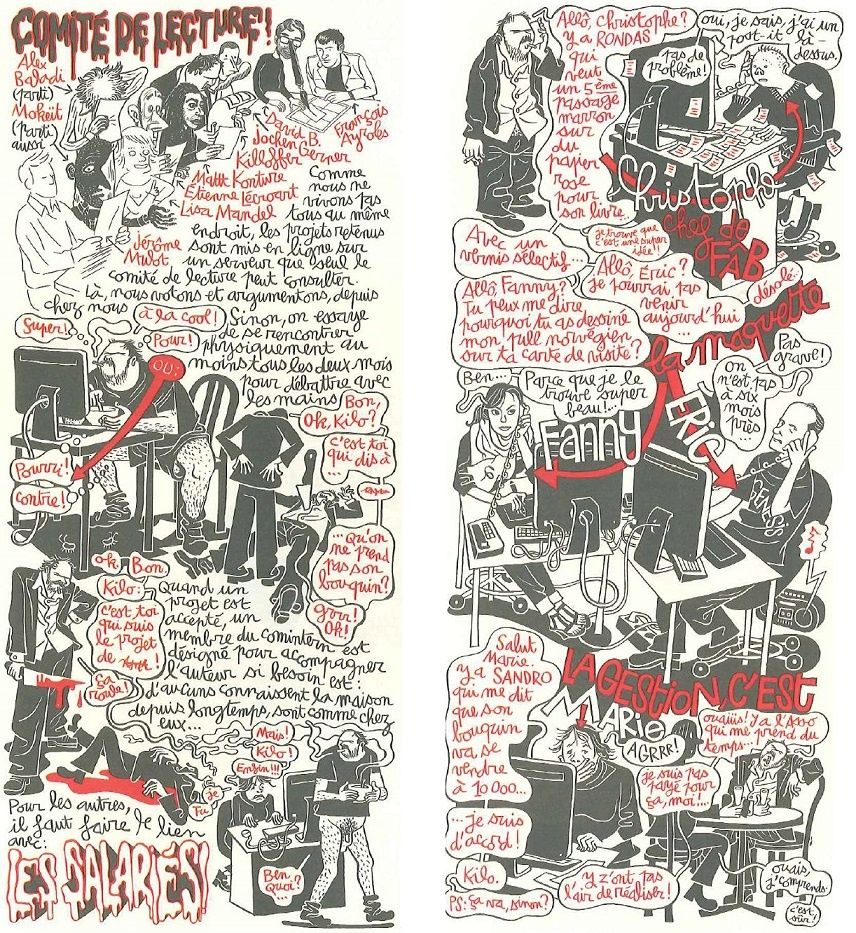 COMITÉ DE LECTURE!
Alex
Baladi
(parti)
Mokeït
(parti
aussi)
David B.
François
Ayroles
Jochen Gerner
Killoffer
Matt Konture
Étienne Lécroart
Lisa Mandel
Jérôme
Mulot
Comme
nous ne
vivons pas
tous au même
endroit, les projets retenus
sont mis en ligne sur
un serveur que seul le
comité de lecture peut consulter.
Là, nous votons et argumentons, depuis
chez nous
Super!
à la cool!
Pour!
ou:
Pourri!
contre!
Sinon, on essaye
de se rencontrer
physiquement au
moins tous les deux mois
pour débattre avec
les mains
Bon,
Ok, Kilo?
c'est toi
qui dis à
...
... Qu'on
ne prend
pas son
bouquin?
Grrr!
Ok!
Ok. Bon.
Kilo:
c'est toi
qui suis
le projet
de
ça
roule!
Quand un
projet est
accépté, un
membre du comintern est
désigné pour accompagner
l'auteur si besoin est:
d'aucuns connaissent la maison
depuis longtemps, sont comme chez
eux...
Mais!
Kilo!
Enfin!!!
Ben
Quoi?
Pour les autres,
il faut faire le lien
avec:
LES SALARIÉS!
Allô, Christophe?
y a RONDAS
qui
veut
un 5ème
passage
marron
sur
du
papier
rose
pour
son livre..
pas de
problème!
oui, je sais, j'ai un
post-it là-
dessus.
Christophe
chef de
FAB
Avec un
vernis sélectif...
je trouve que
c'est une super
idée!
Allô, Fanny?
Tu peux me dire
pourquoi tu as dessiné
mon pull norvégien
sur ta carte de visite?
Allô, Éric?
Je pourrai pas
venir
aujourd'hui
...
désolé.
la maquette
Ben...
Parce que je le
trouve super
beau!...
Pas
grave!
on
n'est pas
à six
mois
près...
Fanny
ERIC
Salut
Marie:
y a SANDRO
qui me dit
que son
bouquin
va se
vendre
à 10 000...
... je suis
d'accord!
Kilo.
PS: ça va, sinon?
LA GESTION, C'EST
MARIE
AGRRR!
ouaiiis! Y a l'Asso
qui me prend du
temps...
je suis pas
payé pour
ça, moi!...
Y z'ont pas
l'air de réaliser!
ouais,
j'comprends.
c'est
sûr!